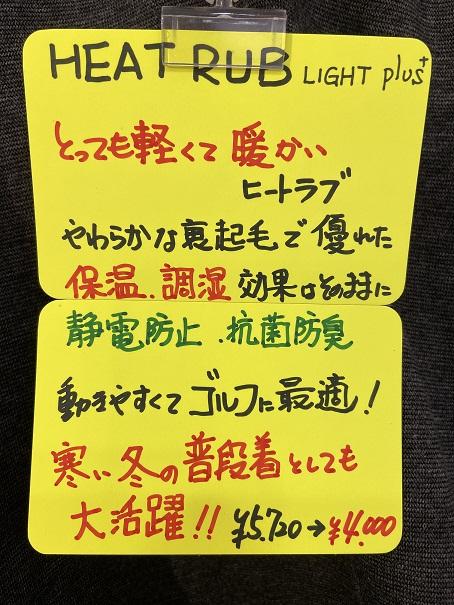 HEAT RUB LIGHT plus+
とっても軽くて暖かい
ヒートラブ
やわらかな裏起毛で優れた
保温、調湿効果はそのままに
静電防止、抗菌防臭
動きやすくてゴルフに最適!
寒い冬の普段着としても
大活躍!! ¥5,720→¥4,000